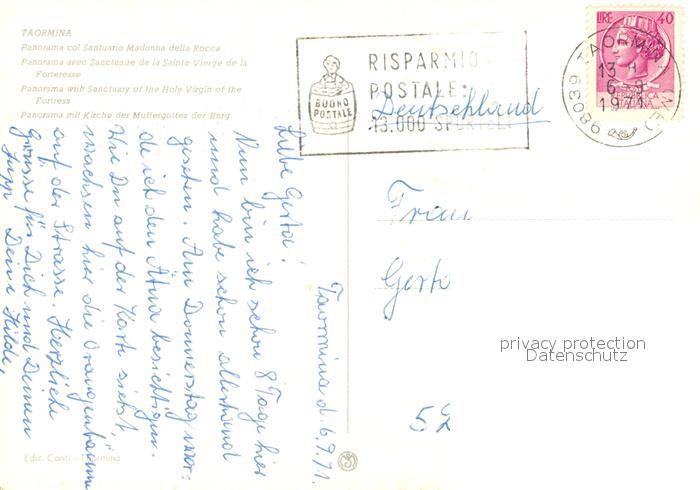 TAORMINA
Panorama col Santuario Madonna della Rocca
Panorama avec Sanctuaire de la Sainte Vierge de la
Forteresse
Panorama with Sanctuary of the Holy Virgin of the
Fortress
Panorama mit Kirche der Muttergottes der Burg
RISPARMIO
POSTALE:
13.000 SPORTELLI
BUONO
POSTALE
LIRE 40
REPUBBLICA
ITALIANA
98039 TAORMINA
13
6 9
1971
Deutschland
Taormina d. 6.9.71.
Liebe Gerta!
Nun bin ich schon 8 Tage hier
und habe schon allerhand
gesehen. Am Donnerstag wer-
de ich den Ätna besichtigen.
Wie Du auf der Karte siehst
wachsen hier die Orangenbäume
auf der Strasse. Herzliche
Grüsse für Dich und Deinen
Jupp Deine Hilde,
Frau
Gerta
52
privacy protection
Datenschutz
Ediz. Conti - Taormina